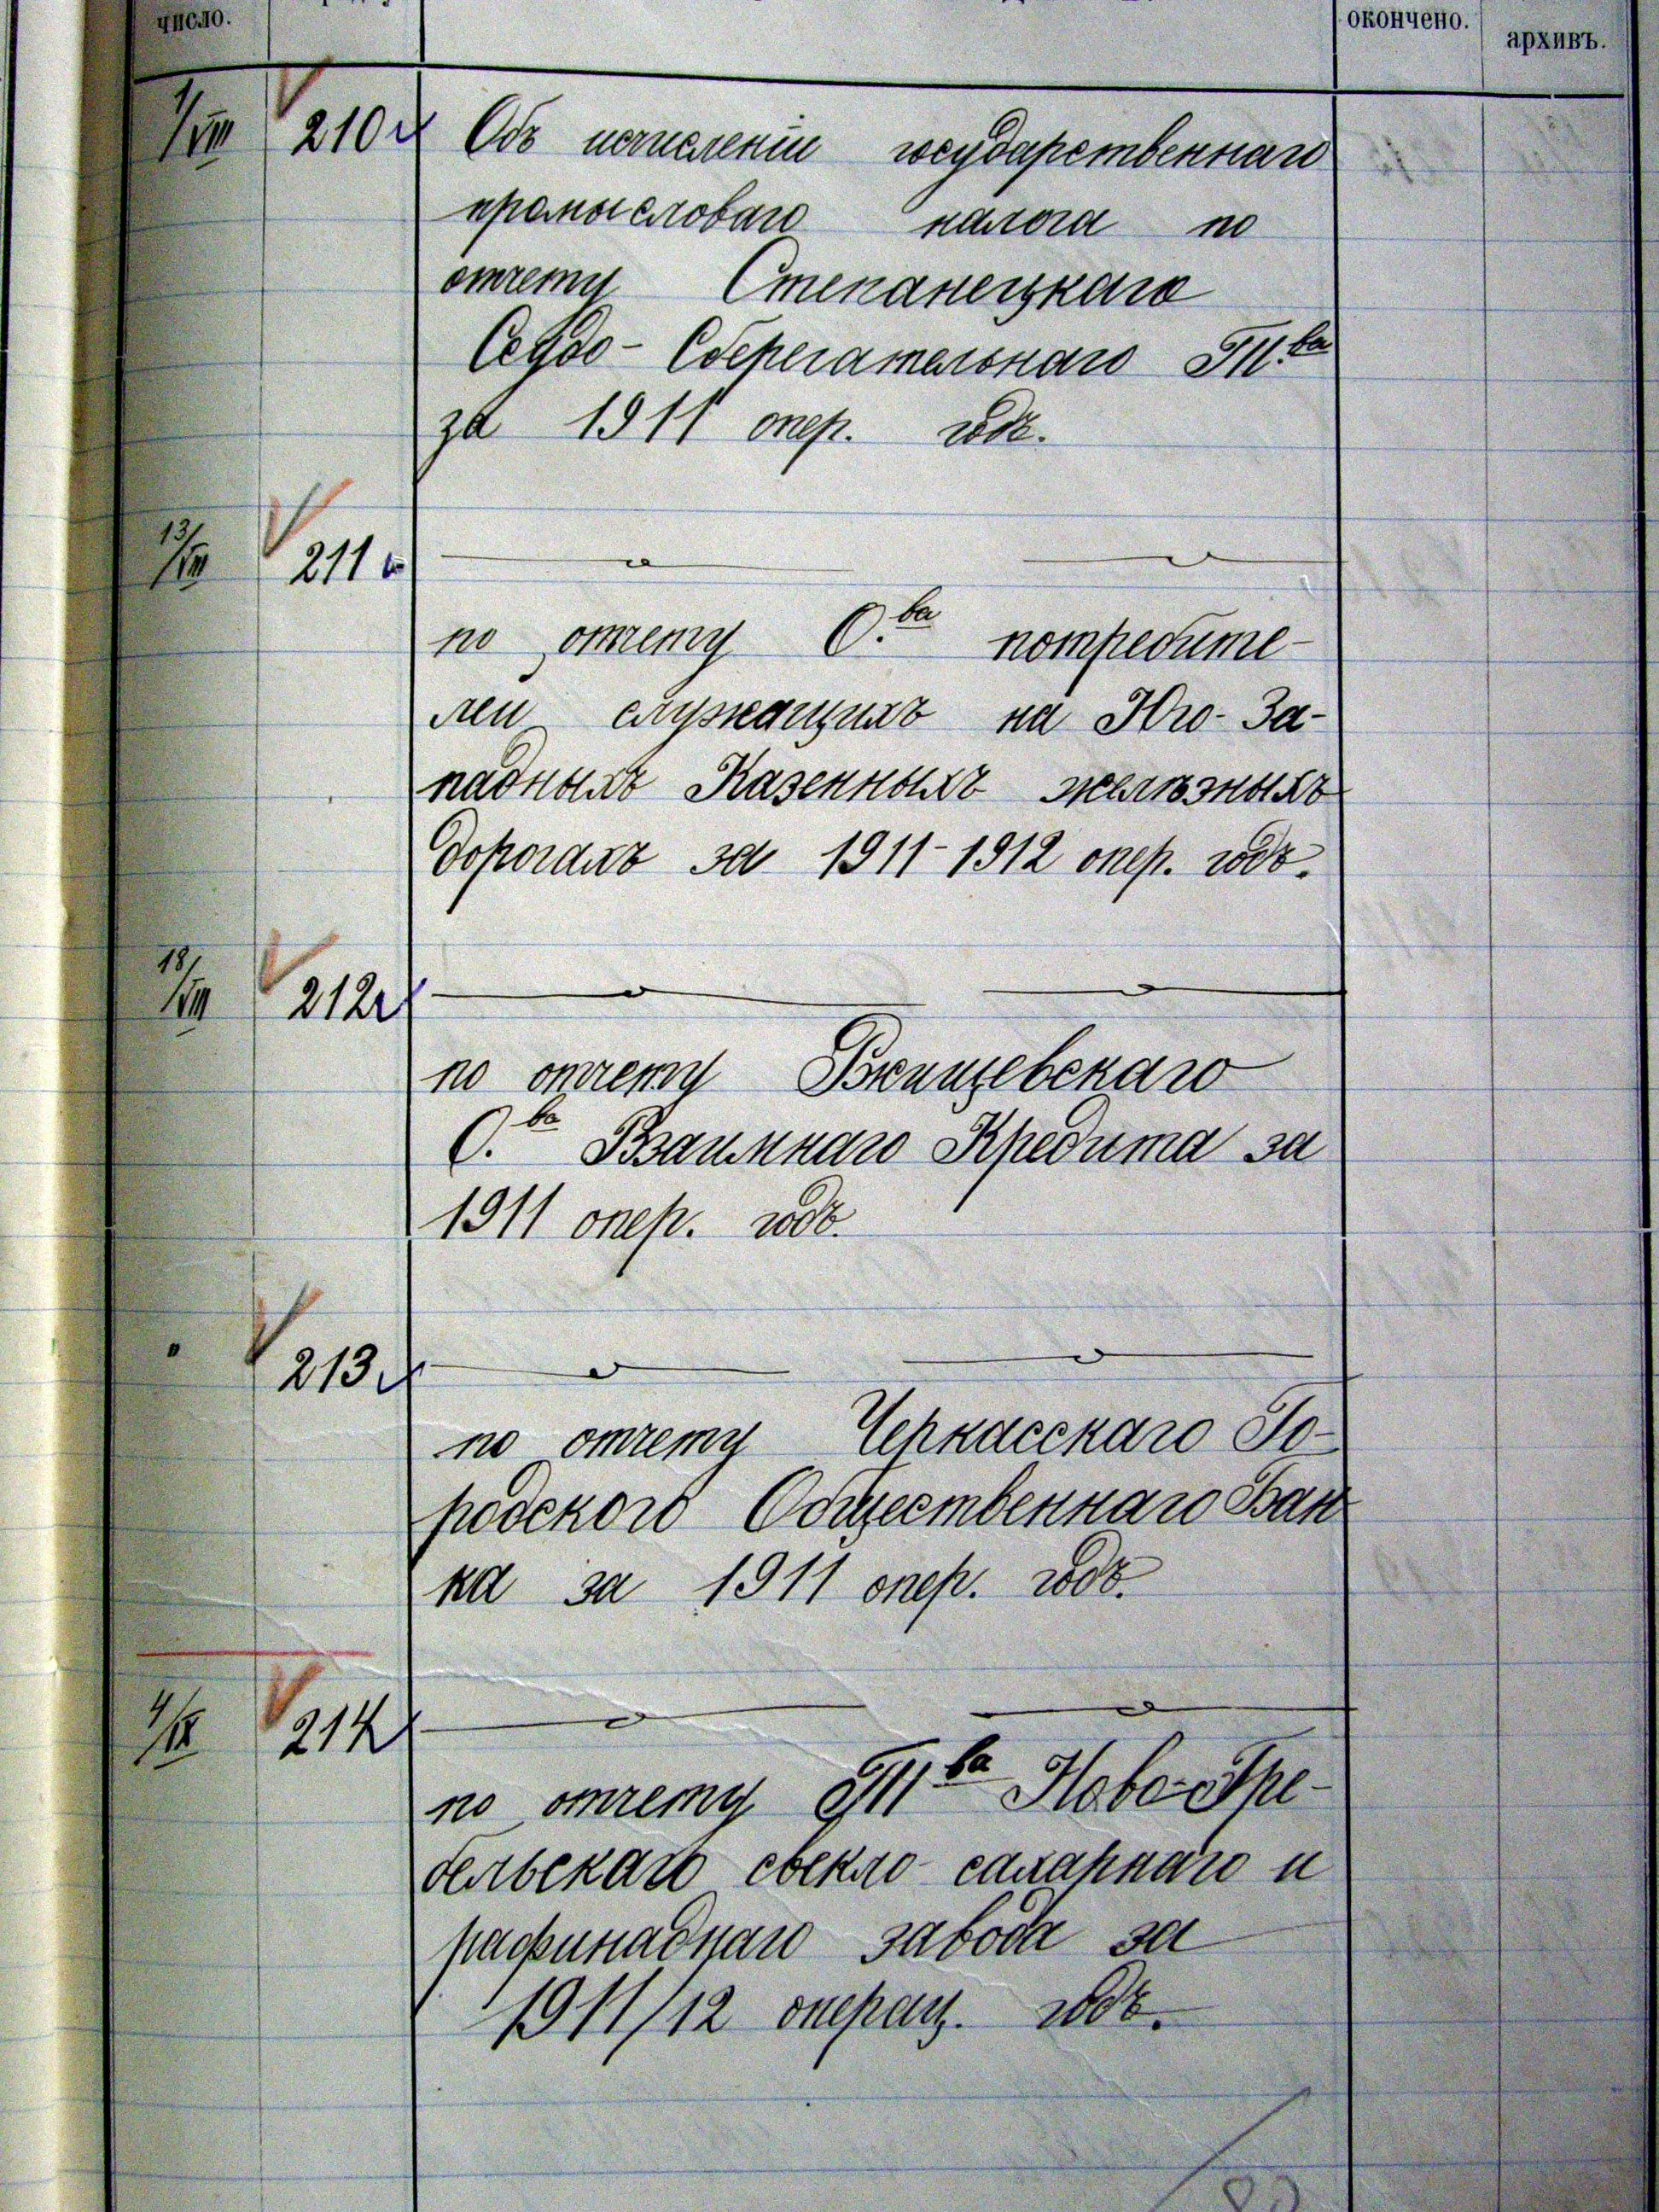 число.
окончено.
архивъ.
1/VIII 210 Объ исчисленіи государственнаго
промысловаго налога по
отчету Степанецкаго
Ссудо-Сберегательнаго Т-ва
за 1911 опер. годъ.
13/VIII 211
по отчету О.ва потребите-
лей служащихъ на Юго-За-
падныхъ Казенныхъ желѣзныхъ
дорогахъ за 1911-1912 опер. годъ.
18/VIII 212
по отчету Ржищевскаго
О.ва Взаимнаго Кредита за
1911 опер. годъ.
" 213
по отчету Черкасскаго Го-
родского Общественнаго Бан
ка за 1911 опер. годъ.
4/IX 214
по отчету Т-ва Ново-Гре-
бельскаго свекло-сахарнаго и
рафинаднаго завода за
1911/12 операц. годъ.